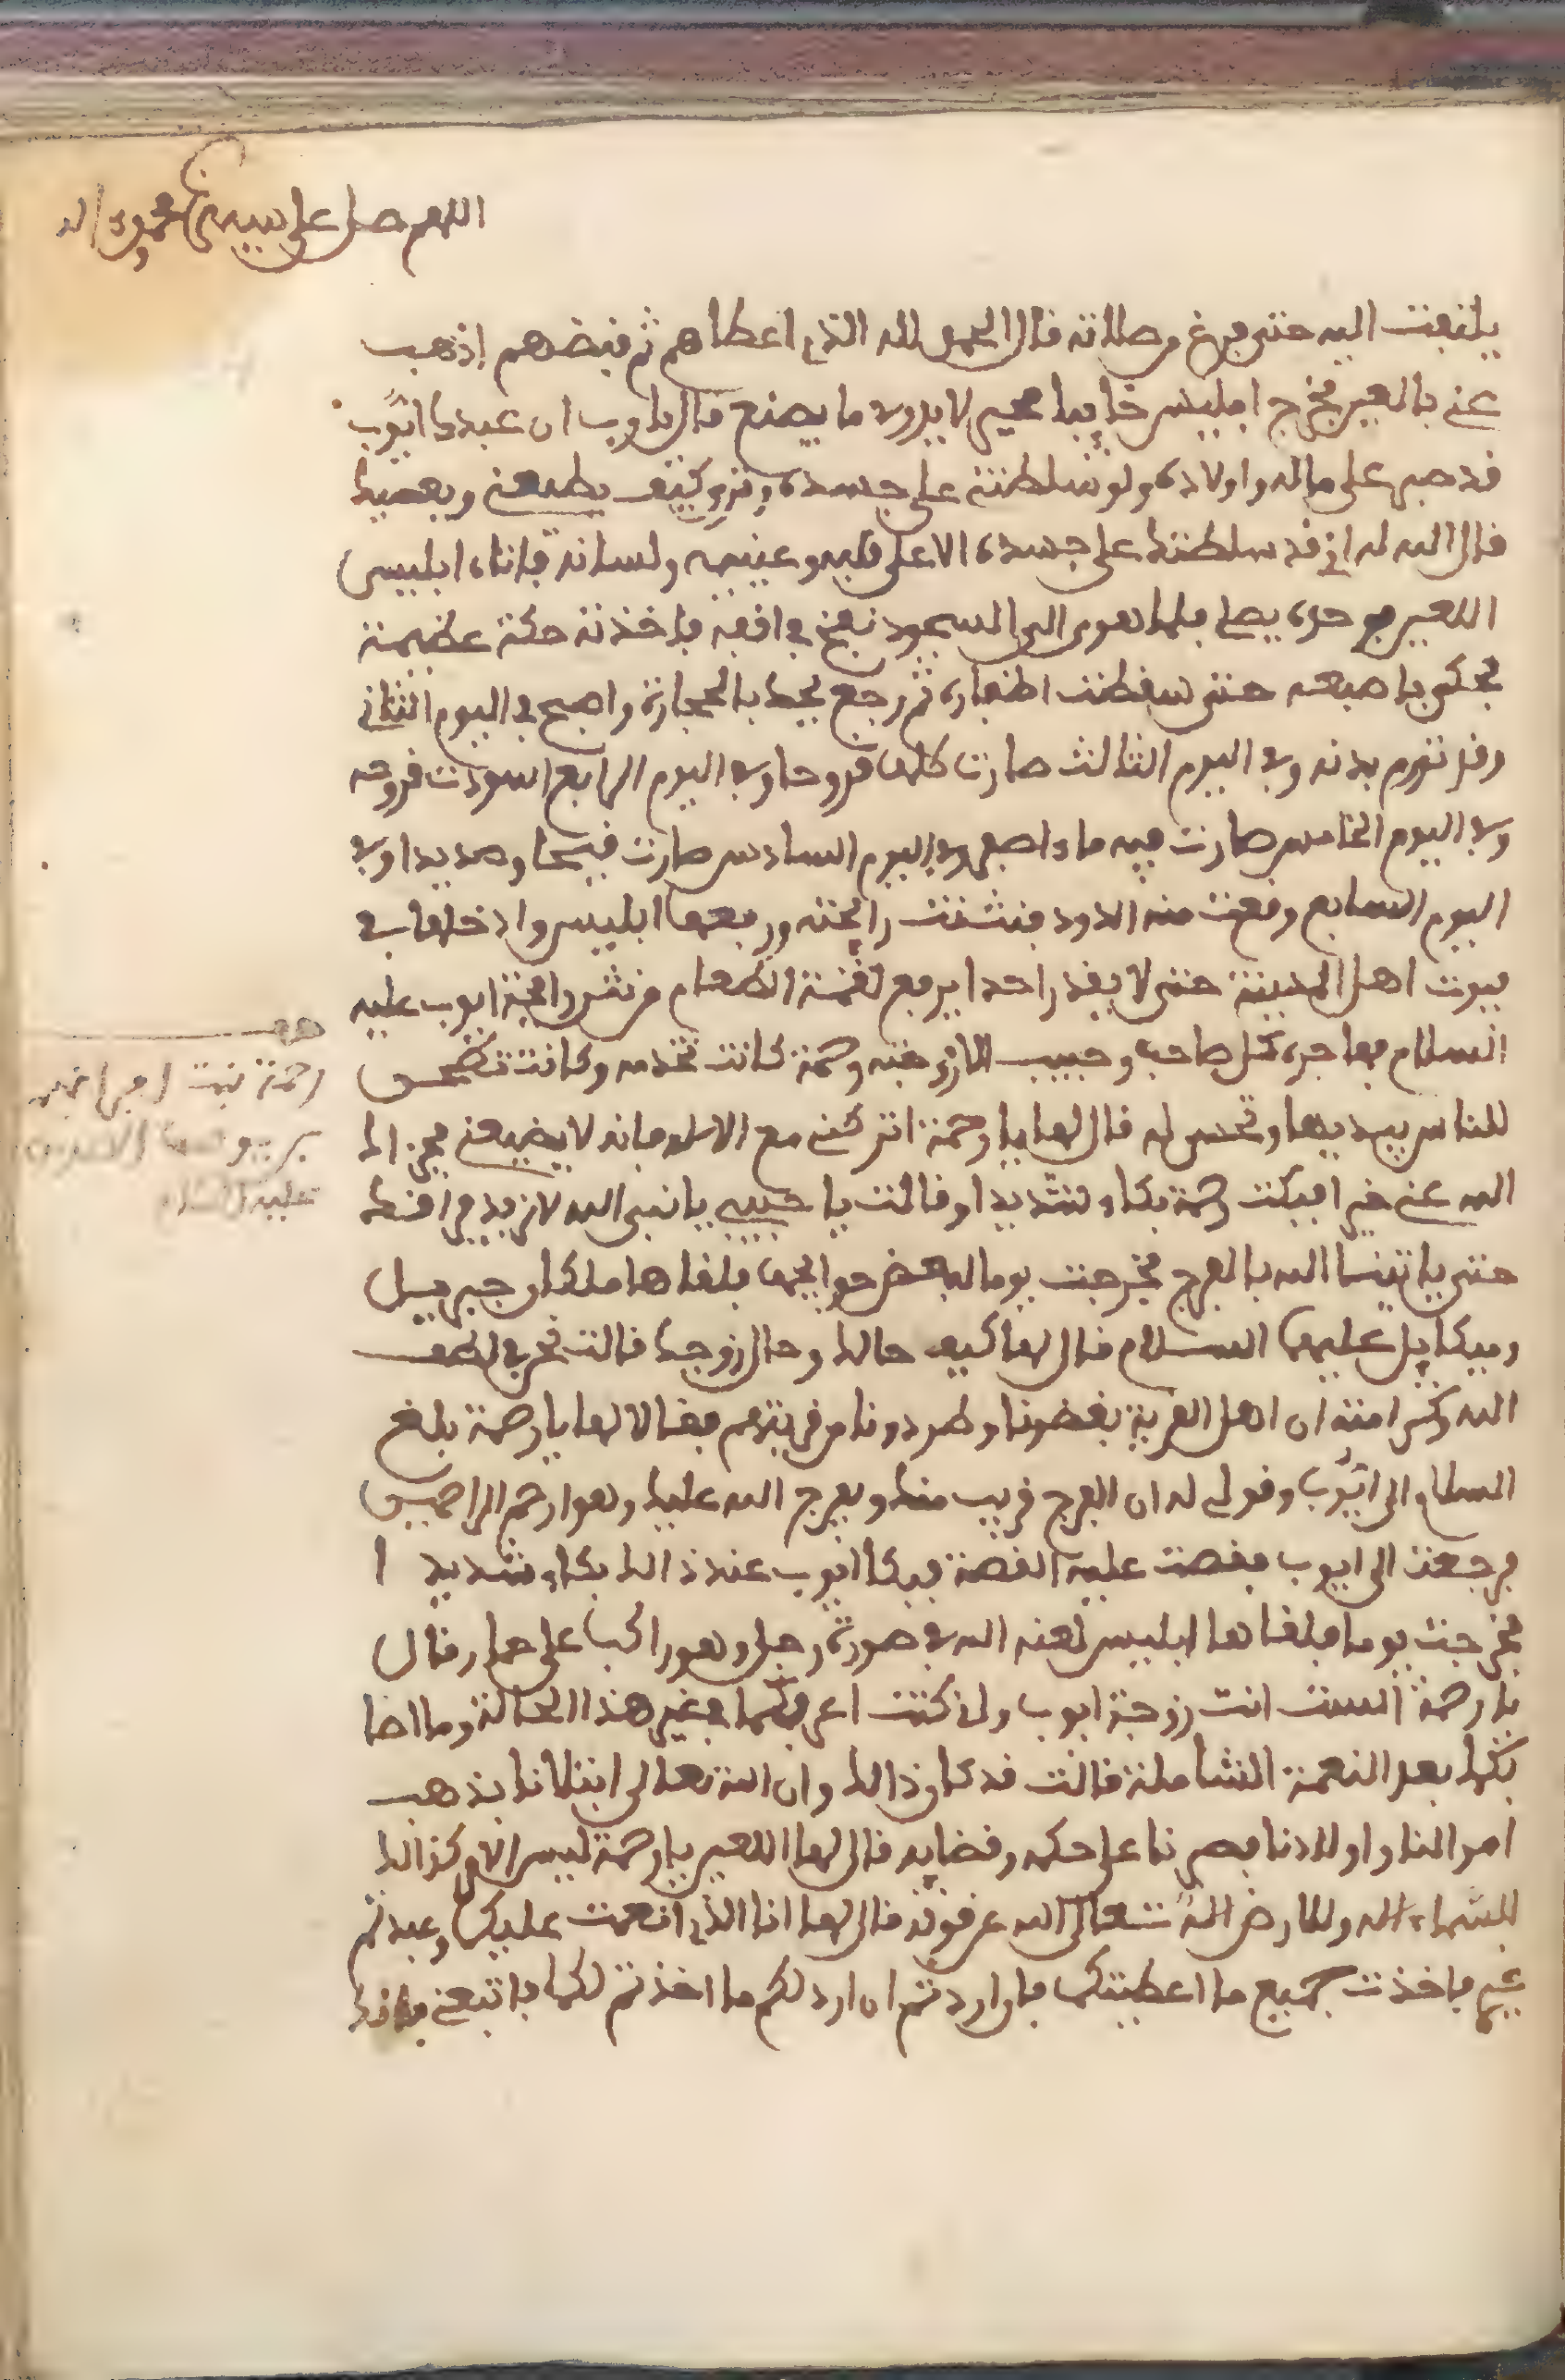 اللهم صل على سيدنا محمد واله
يلتفت اليه حتى فرغ من صلاته قال الحمد لله الذي اعطاهم ثم قبضهم إذهب
عني يا لعين فخرج ابليس خايبا لا يدري ما يصنع قال يا رب ان عبدك ايوب
قد صبر على ماله واولاده ولو سلطتني على جسده وتري كيف يطيعني ويعصيك
قال الله له اني قد سلطتك على جسده الا على قلبه وعينيه ولسانه فاتاه ابليس
اللعين يصلي فلما هوى الى السجود نفخ في انفه فاخذته حكة عظيمة
فحكى باصبعه حتى سقطت اظفاره ثم رجع يحك بالحجارة واصبح في اليوم الثاني
وقد تورم بدنه وفي اليوم الثالث صارت كلها قروحا وفي اليوم الرابع اسودت قروحه
وفي اليوم الخامس صارت فيه ماء اصفر وفي اليوم السادس صارت قيحا وصديدا وفي
اليوم السابع وقعت منه الدود فنشنت رايحته ورفعها ابليس وادخلها في
بيوت اهل المدينة حتى لا يقدر احدا يرفع لقمة الطعام من نشن رايحة ايوب عليه
السلام فهاجره كل صاحب وحبيب الا زوجته رحمة كانت تخدمه وكانت تطحن
للناس بيديها وتحسن له قال لها يا رحمة اتركني مع الاسلام فانه لا يضيعني فجزاك
الله عني خيرا فبكت رحمة بكاء شديدا وقالت يا حبيبي يا نبي الله لا نريد فراقك
حتى ياتينا الله بالفرج فخرجت يوما لبعض حوايجها فلقاها ملكان جبريل
وميكايل عليهما السلام قال لها كيف حالك وحال زوجك قالت نحن في لطف
الله وكرامته ان اهل القرية بغضونا وطردونا من قريتهم فقالا لها يا رحمة بلغ
السلام الى ايوب وقولي له ان الفرج قريب منك ويفرج الله عليك وهو ارحم الراحمين
فرجعت الى ايوب فقصت عليه القصة فبكا ايوب عند ذالك بكاء شديدا
فخرجت يوما فلقاها ابليس لعنه الله في صورة رجل وهو راكب على حمار وقال
يا رحمة الست انت زوجة ايوب ولن كنت اعرفكما في غير هذا الحالة وما اصا
بكما بعد النعمة الشاملة قالت قد كان ذالك وان الله تعالى ابتلانا بذهب
اموالنا واولادنا فصبرنا على حكمه وقضايه قال لها اللعين يا رحمة ليس الامر كذالك
للسماء اله وللارض اله تعالى الله عرفونه قال لها انا الذي انعمت عليكما وعبدتم
غيري فاخذت جميع ما اعطيتكما فان اردتم ان ارد لكم ما اخذتم لكما فاتبعني
رحمة بنت
عليه السلام